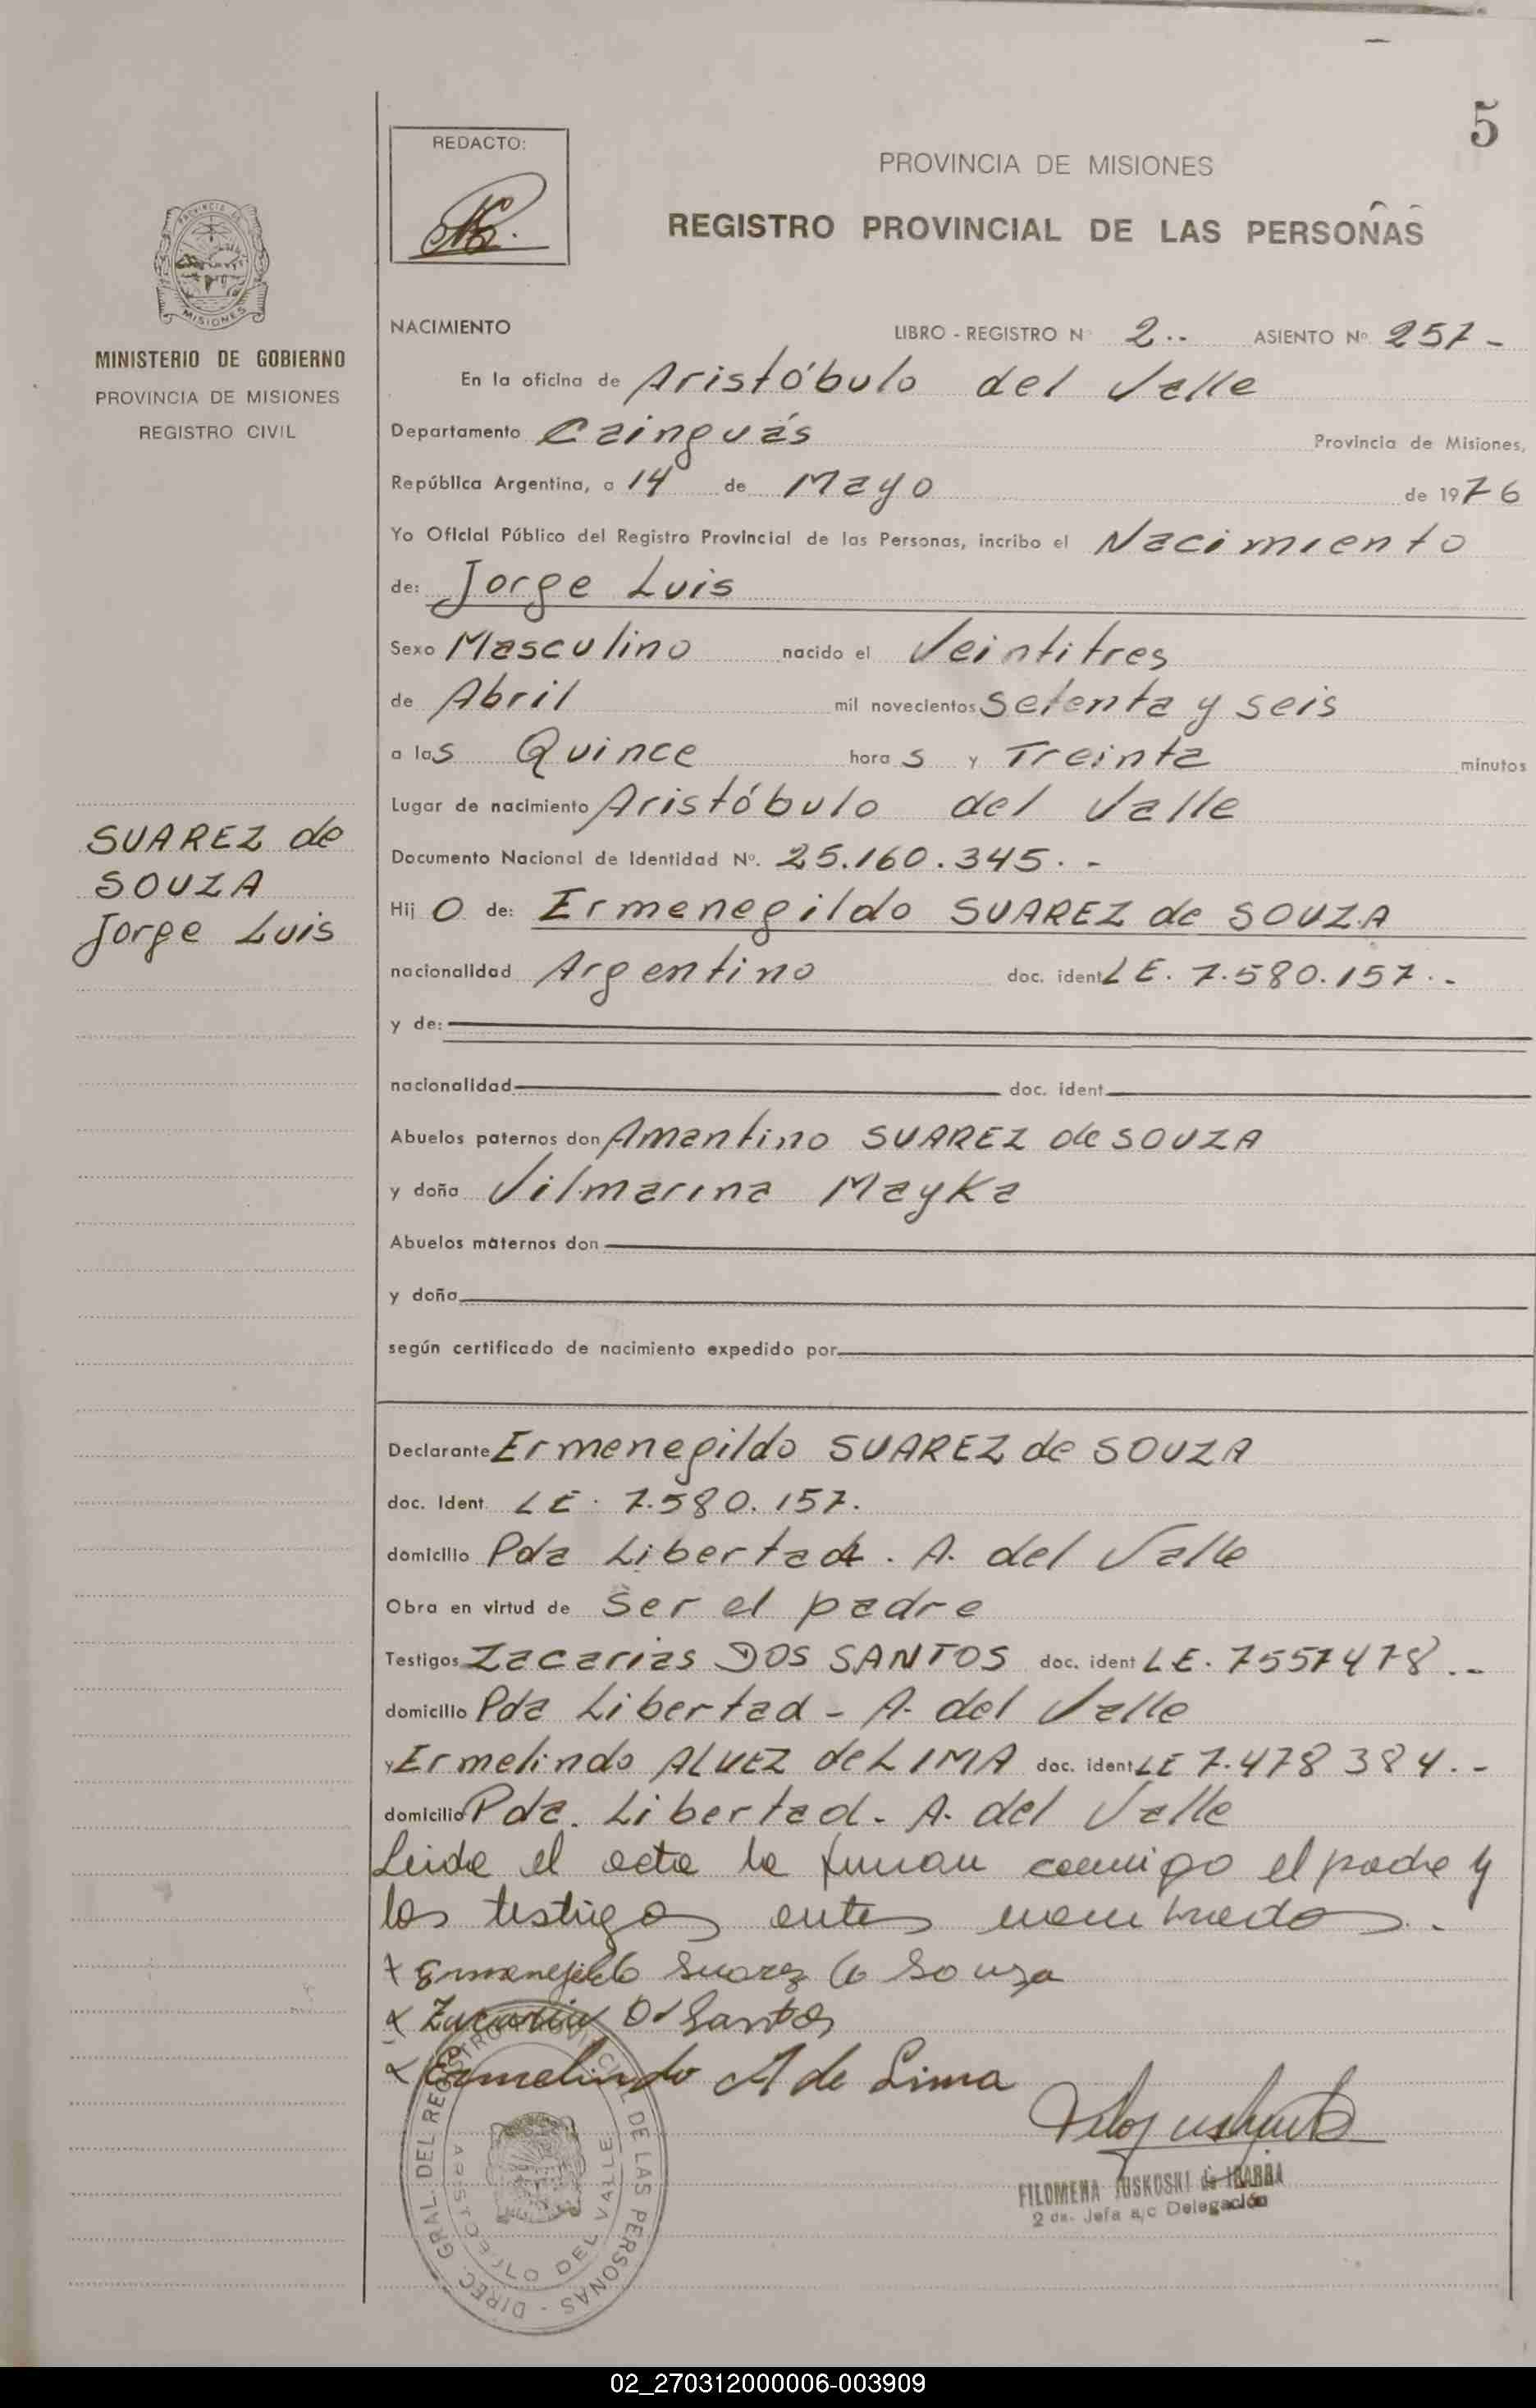 5
REDACTO:
PROVINCIA DE MISIONES
REGISTRO PROVINCIAL DE LAS PERSONAS
MISIONES
MINISTERIO DE GOBIERNO
PROVINCIA DE MISIONES
REGISTRO CIVIL
NACIMIENTO LIBRO - REGISTRO Nº 2.. ASIENTO Nº 257-
En la oficina de Aristóbulo del Valle
Departamento Cainguás Provincia de Misiones,
República Argentina, a 14 de Mayo de 1976
Yo Oficial Público del Registro Provincial de las Personas, incribo el Nacimiento
de: Jorge Luis
Sexo Masculino nacido el Veintitres
de Abril mil novecientos setenta y seis
a las Quince horas y Treinta minutos
Lugar de nacimiento Aristóbulo del Valle
SUAREZ de
SOUZA
Jorge Luis
Documento Nacional de Identidad Nº. 25.160.345.-
Hijo de: Ermenegildo SUAREZ de SOUZA
nacionalidad Argentino doc. ident LE. 7.580.157.-
y de:
nacionalidad doc. ident.
Abuelos paternos don Amantino SUAREZ de SOUZA
y doña Vilmarina Mayka
Abuelos maternos don
y doña
según certificado de nacimiento expedido por
Declarante Ermenegildo SUAREZ de SOUZA
doc. Ident. LE. 7.580.157.
domicilio Pda Libertad. A. del Valle
Obra en virtud de Ser el padre
Testigos Zacarias DOS SANTOS doc. ident LE. 7557478.-
domicilio Pda Libertad - A. del Valle
y Ermelindo ALVEZ de LIMA doc. ident LE 7.478 384.-
domicilio Pda. Libertad - A. del Valle
Leida el acta la firman conmigo el padre y
los testigos antes nombrados.
Suarez Souza
Zacaria Santos
Ermelindo A de Lima
DIREC. GRAL. DEL REGISTRO PROVINCIAL DE LAS PERSONAS
ARISTOBULO DEL VALLE
FILOMENA JUSKOSKI de IBARRA
2 da. Jefa a/c Delegación
02_270312000006-003909